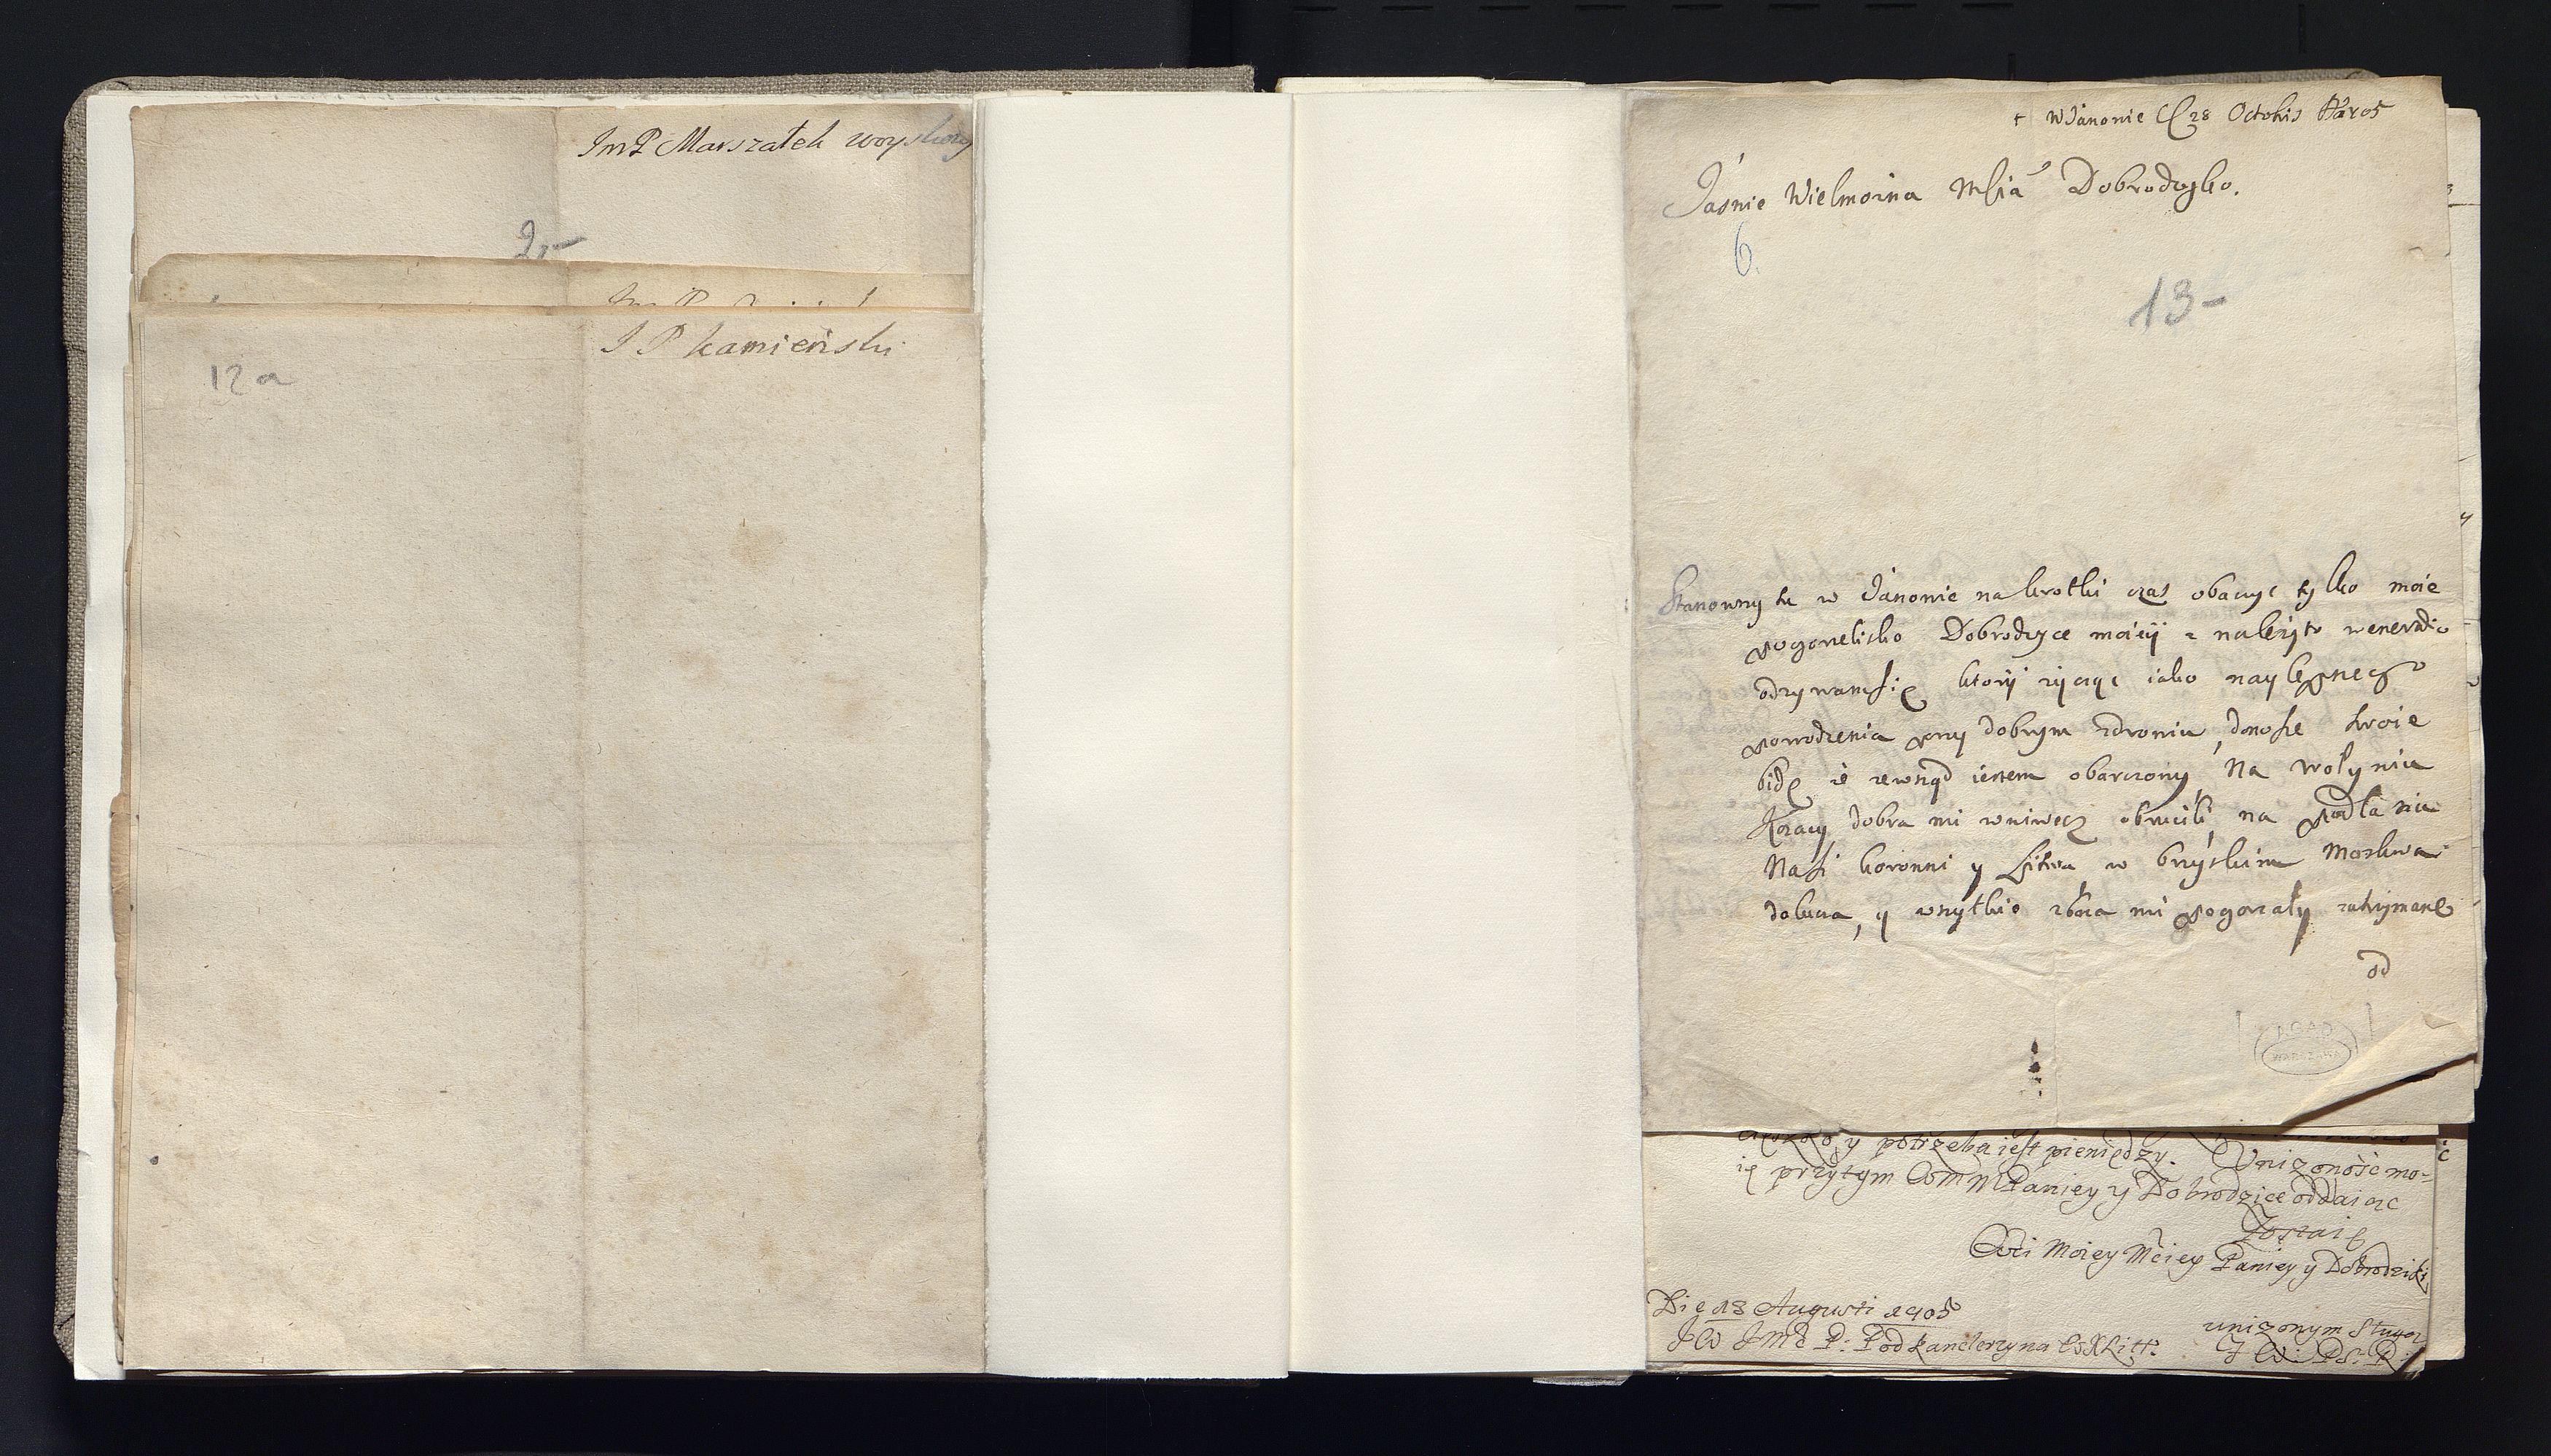 JmP Marszałek woyskowy
2,-
J P Kamieński
12a
+ w Janowie 28 Octobris
Jasnie Wielmozna Mścia Dobrodzyko.
6.
13-
Stanowny tu w Janowie na krotki czas obaczyc tylko moie
pogorelisko Dobrodzyce moiey z nalezyto
odzywamsię ktory zyczęc iako naylepszego
powodzenia przy dobrym zdrowiu, donosze swoie
bidę ze zewsząd iestem obarczony, Na Wołyniu
Kozacy dobra mi wniwecz obrucili, na Podlasiu
Nasi koronni y Litwa w brzyskim Moskwa
dokucza, y wszytkie zboza mi pogorzały zatrzymane
od
AGAD
WARSZAWA
y potrzeba iest pieniędzy. Unizonosc mo-
ię przytym WMMPaniey y Dobrodzice oddaiąc
Zostaię
Moiey Mciey Paniey y Dobrodziki
Die 18 Augusti
JW JMC P: Podkanclerzyna WXLitt:
unizonym sługą